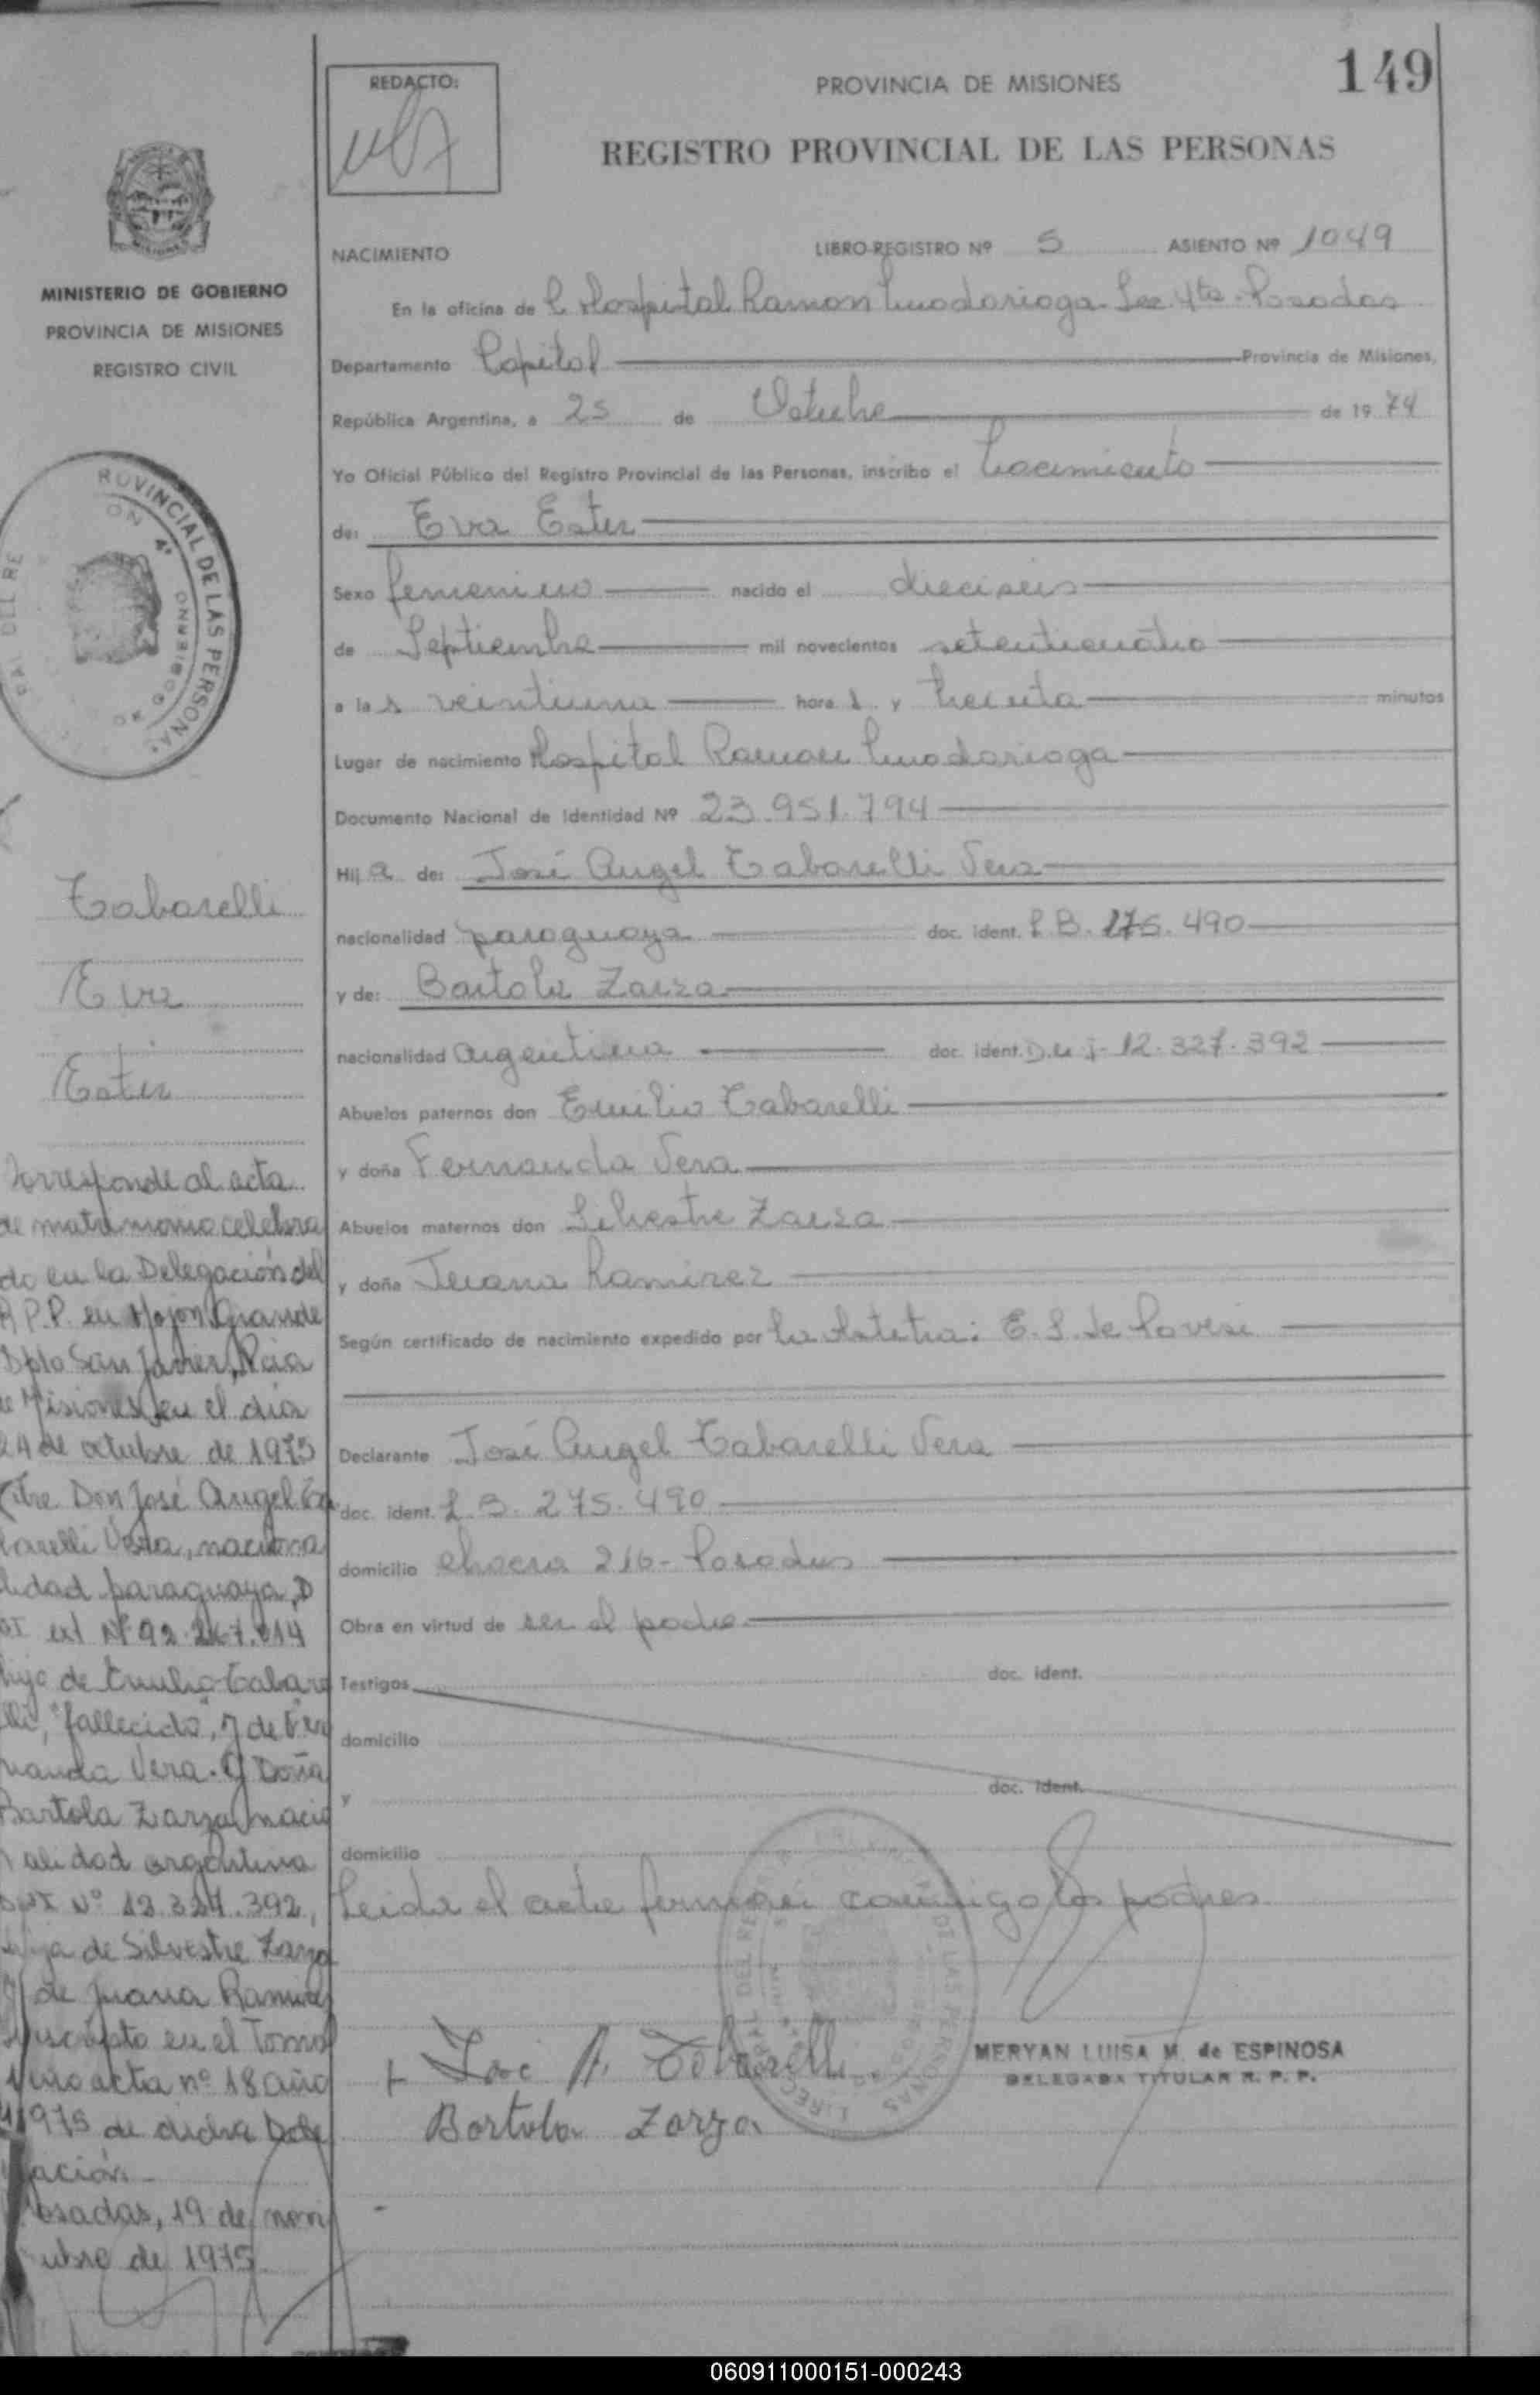 149
REDACTO:
PROVINCIA DE MISIONES
REGISTRO PROVINCIAL DE LAS PERSONAS
MISIONES
MINISTERIO DE GOBIERNO
PROVINCIA DE MISIONES
REGISTRO CIVIL
NACIMIENTO
LIBRO-REGISTRO Nº 5 ASIENTO Nº 1049
En la oficina de Hospital Ramon Sec. 4ta. Posadas
Departamento Capital Provincia de Misiones,
República Argentina, a 25 de Octubre de 1974
Yo Oficial Público del Registro Provincial de las Personas, inscribo el nacimiento
de: Eva Ester
Sexo femenino nacido el dieciseis
de Septiembre mil novecientos setenticuatro
a las veintiuna horas y treinta minutos
Lugar de nacimiento Hospital Ramon
Documento Nacional de Identidad Nº 23.951.794
Hija de: José Angel Tabarelli Vera
nacionalidad paraguaya doc. ident. 275.490
y de: Bartola Zarza
nacionalidad argentina doc. ident. D.N.I. 12.327.392
Abuelos paternos don Emilio Tabarelli
y doña Fernanda Vera
Abuelos maternos don Silvestre Zarza
y doña Juana Ramirez
Según certificado de nacimiento expedido por la obstetra: E. S. de
Declarante José Angel Tabarelli Vera
doc. ident. 275.490
domicilio chacra 216 - Posadas
Obra en virtud de ser el padre
Testigos doc. ident.
domicilio
y doc. ident.
domicilio
Leida el acta firman conmigo los padres
José A. Tabarelli
Bartola Zarza
MERYAN LUISA M. de ESPINOSA
DELEGADA TITULAR R. P. P.
ROVINCIAL DE LAS PERSONA
Tabarelli
Eva
Ester
Corresponde al acta
de matrimonio celebra
do en la Delegación del
R.P.P. en Mojon Grande
Dpto San Javier, Pcia
de Misiones, en el día
24 de octubre de 1975
entre Don José Angel Ta
barelli Vera, naciona
lidad paraguaya, D
ext Nº 92.267.014
hijo de Emilio Tabare
lli, "fallecido", y de Fer
nanda Vera. y Doña
Bartola Zarza, nacio
nalidad argentina
DNI Nº 12.327.392,
hija de Silvestre Zarza
y de Juana Ramirez
inscripto en el Tomo
uno acta nº 18 año
1975 de dicha Dele
gación.-
Posadas, 19 de novi
embre de 1975
060911000151-000243